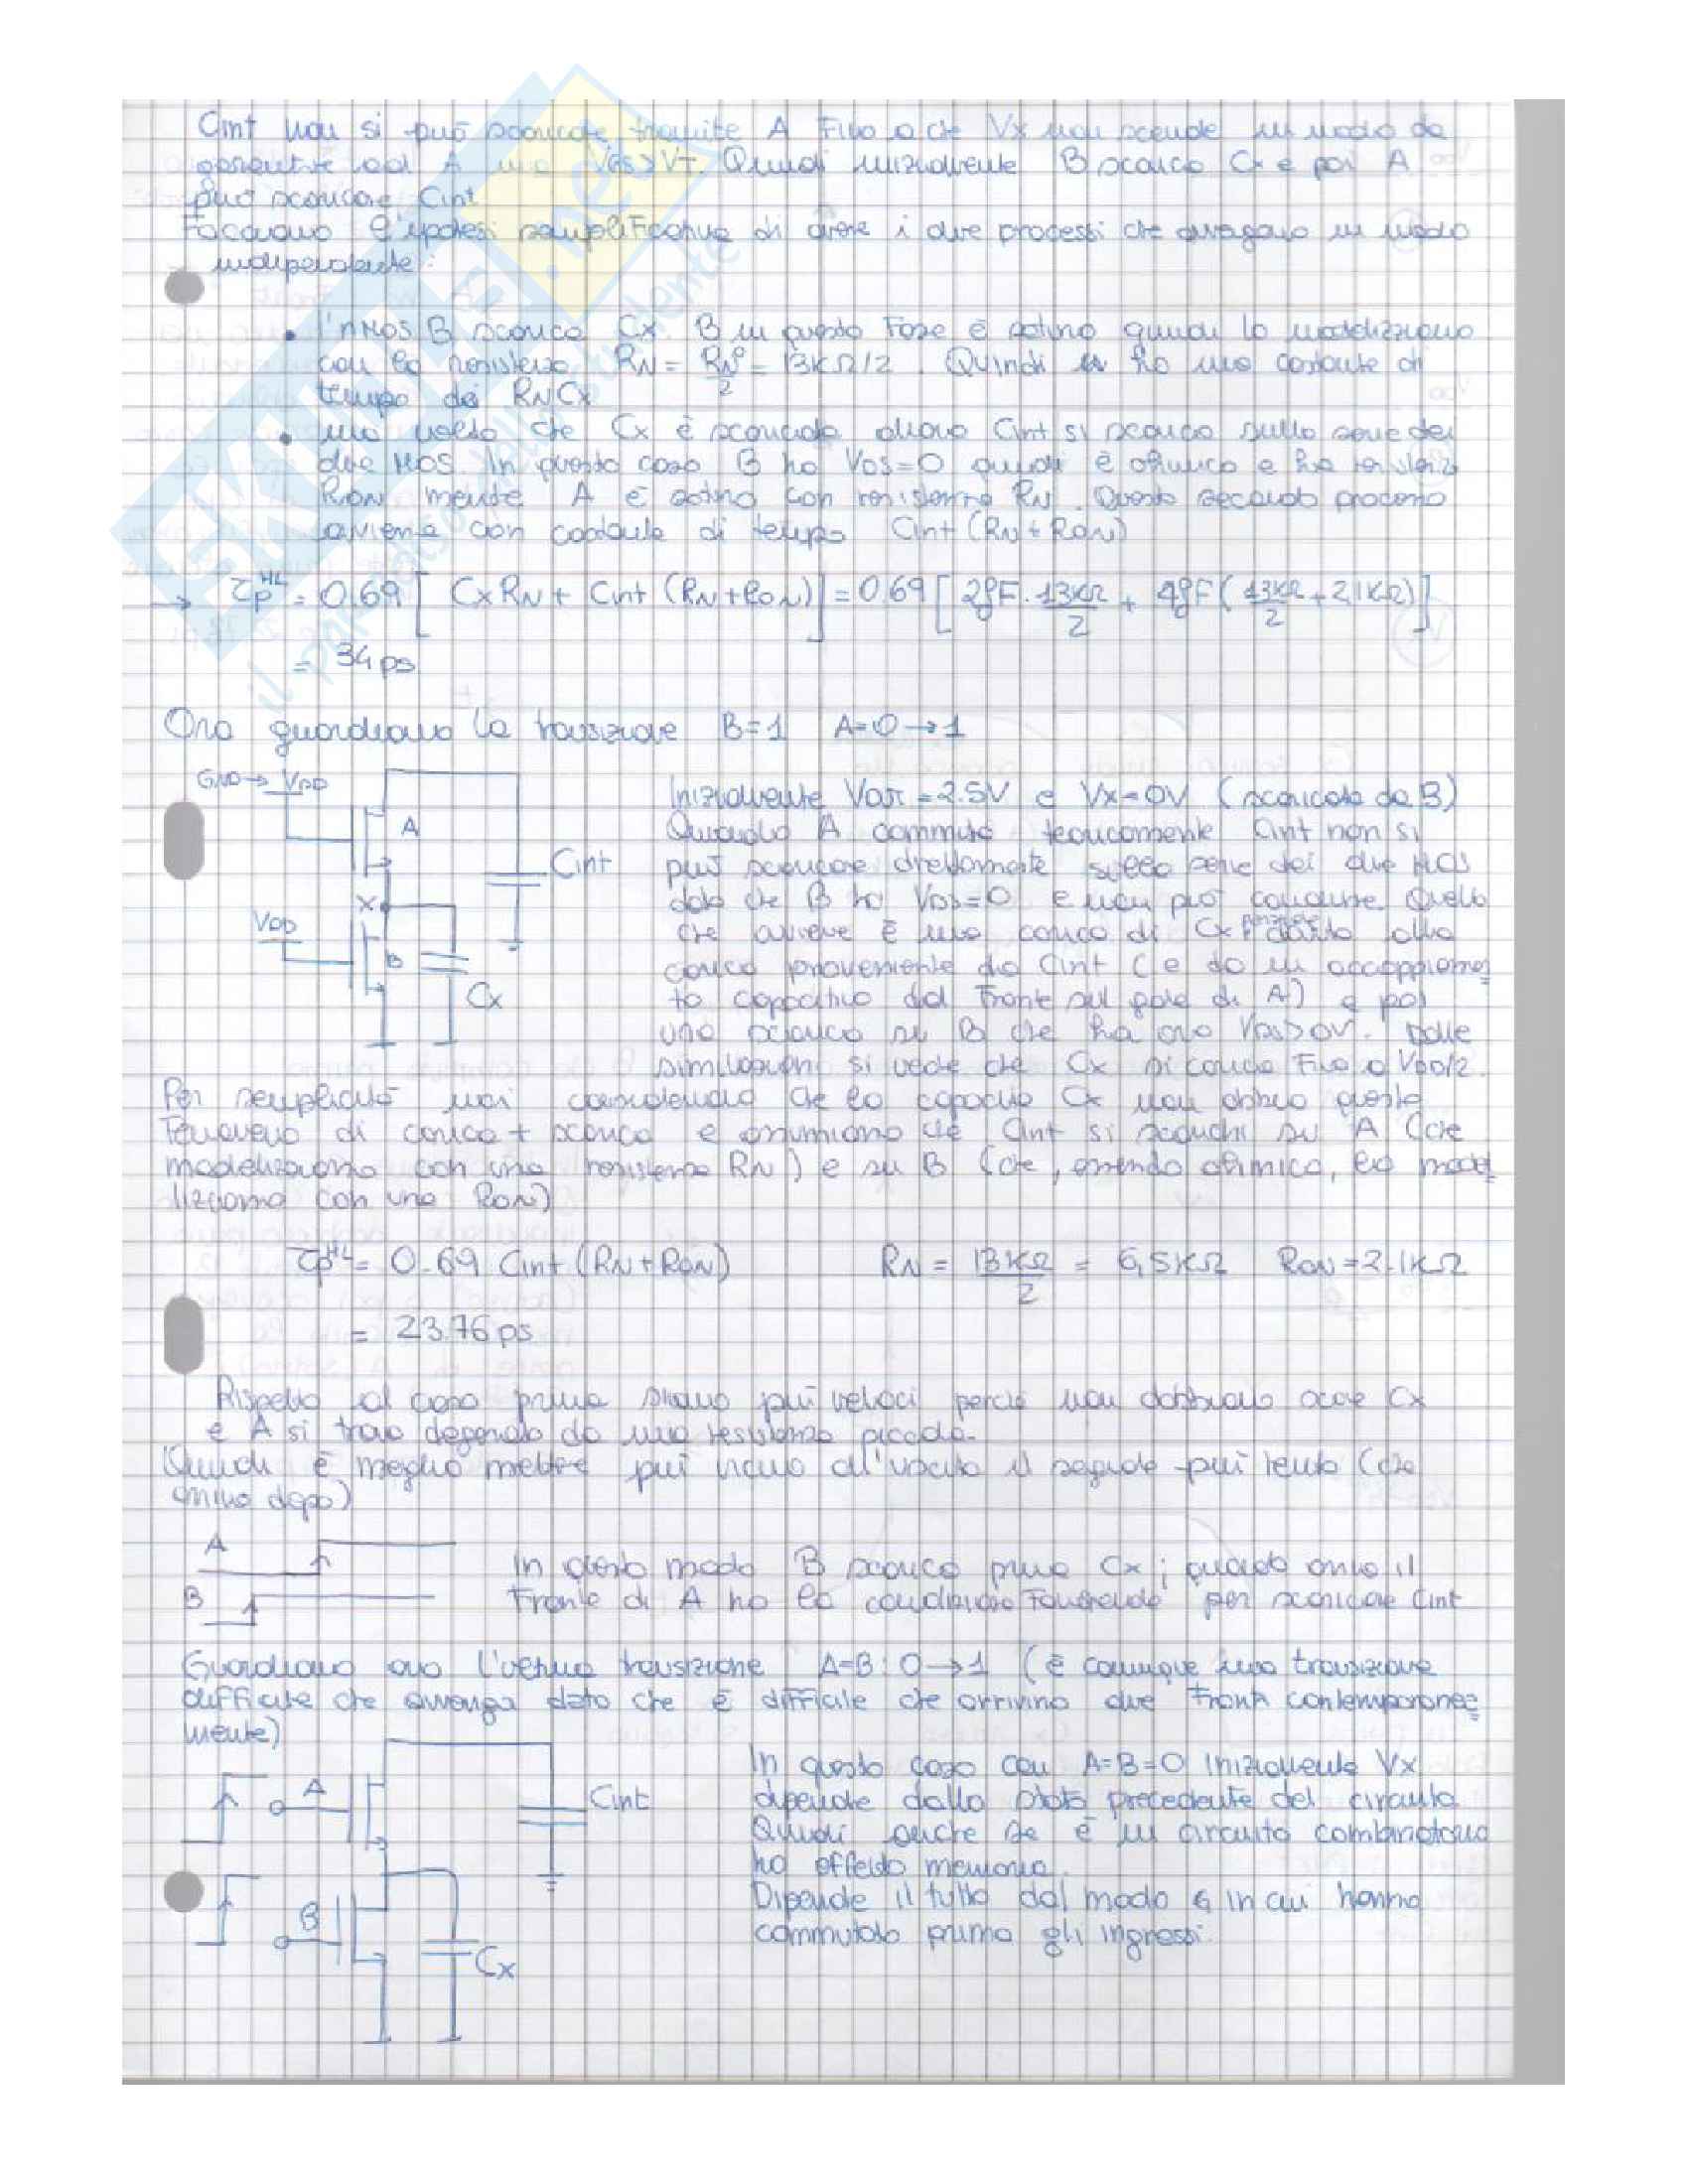 Cint non si può scaricare tramite A Fino a che Vx non scende in modo da
garantire ad A una VGS>VT. Quindi inizialmente B scarica Cx e poi A
può scaricare Cint
Facciamo l'ipotesi semplificativa di avere i due processi che avvengano in modo
indipendente:
• l'nMOS B scarica Cx. B in questa Fase è saturo quindi lo modellizziamo
con la resistenza RN = RN°/2 = 13KΩ/2. Quindi ho una costante di
tempo di RNCx
• una volta che Cx è scaricata allora Cint si scarica sulla serie dei
due MOS. In questo caso B ha VDS=0 quindi è ohmico e ha resistenza
RON mentre A è saturo con resistenza RN. Questo secondo processo
avviene con costante di tempo Cint (RN+RON)
→ τp^HL = 0.69 [ CxRN + Cint (RN+RON) ] = 0.69 [ 2fF · 13KΩ/2 + 4fF ( 13KΩ/2 + 2,1KΩ) ]
= 34ps
Ora guardiamo la transizione B=1 A=0→1
GND→VDD
A
Cint
X
VDD
B
Cx
Inizialmente VOUT=2.5V e Vx=0V (scaricata da B)
Quando A commuta teoricamente Cint non si
può scaricare direttamente sulla serie dei due MOS
dato che B ha VDS=0 e non può condurre. Quello
che avviene è una carica di Cx parziale dovuta alla
carica proveniente da Cint (e da un accoppiamen
to capacitivo dal Fronte sul gate di A) e poi
una scarica su B che ha ora VDS>0V. Dalle
simulazioni si vede che Cx si carica Fino a VDD/2.
Per semplicità noi consideriamo che la capacità Cx non abbia questo
Fenomeno di carica + scarica e assumiamo che Cint si scarichi su A (che
modellizziamo con una resistenza RN) e su B (che, essendo ohmico, lo model
lizziamo con una RON)
τp^HL = 0.69 Cint (RN+RON) RN = 13KΩ/2 = 6,5KΩ RON=2.1KΩ
= 23.76ps
Rispetto al caso prima siamo più veloci perchè non dobbiamo Cx
e A si trova degenerato da una resistenza piccola.
Quindi è meglio mettere più vicino all'uscita il segnale più lento (che
arriva dopo)
A
B
In questo modo B scarica prima Cx; quando arriva il
Fronte di A ho la condizione Favorevole per scaricare Cint
Guardiamo ora l'ultima transizione A=B: 0→1 (è comunque una transizione
difficile che avvenga dato che è difficile che arrivino due Fronti contemporanea
mente)
A
Cint
B
Cx
In questo caso con A=B=0 inizialmente Vx
dipende dallo stato precedente del circuito.
Quindi anche se è un circuito combinatorio
ho effetto memoria.
Dipende il tutto dal modo in cui hanno
commutato prima gli ingressi.